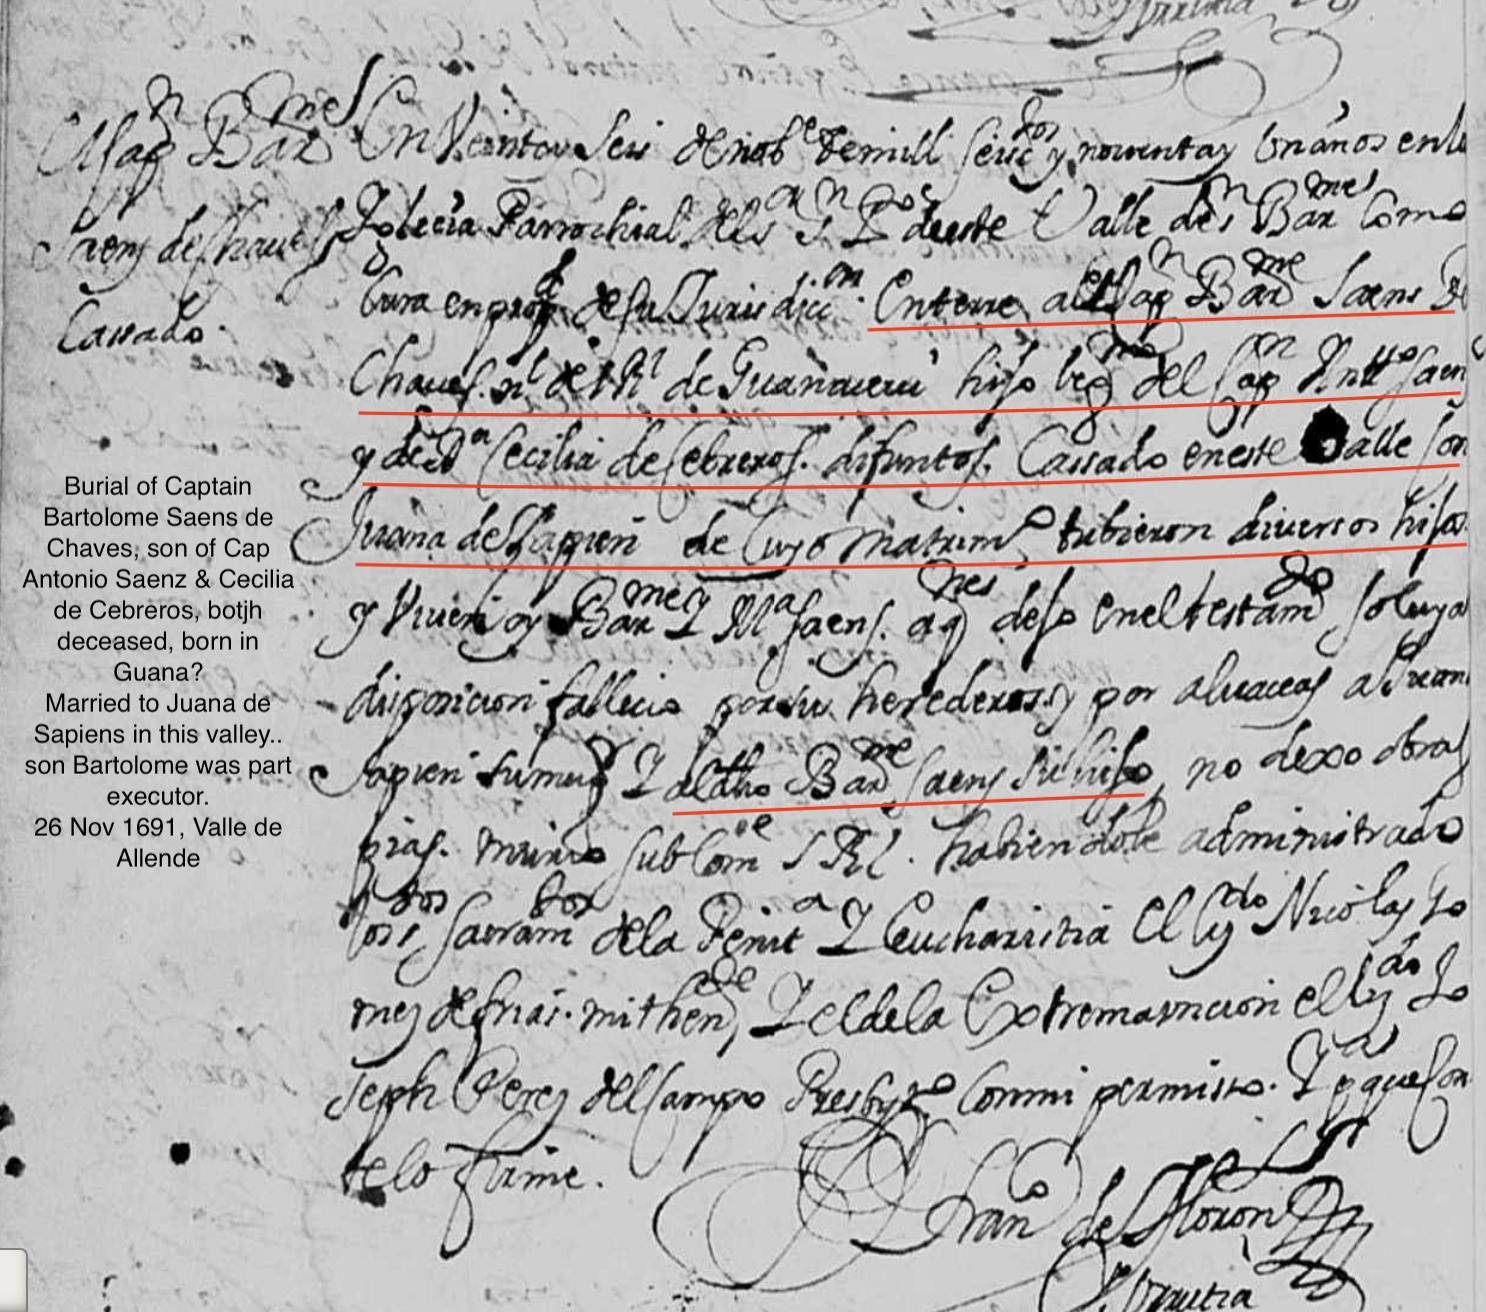 Cap^n Bar^me
Saens de Chaues
Cassado.
En Veinte y Seis de nob^e de mill seisc^tos y nouenta y un años en la
Iglecia Parrochial del s^or S^n P^o deeste Valle de s^n Bar^me Como
Cura en prop^d de su Jurisdicc^on. Enterre al Cap^n Bar^me Saens De
Chaues. n^l del R^l de Guanaceui hijo leg^mo del Cap^n Antt^o Saens
y de D^a Cecilia de Cebreros. difuntos. Cassado en este Valle Con
Juana de Sapien de Cuyo matrim^o tubieron diuersos hijos
y Viuen oy Bar^me Y M^a Saens. a q^nes dejo en el testam^to so cuya
disposicion fallecio por sus herederos. y por aluaceas a Juana
Sapien su muger Y al dho Bar^me Saens su hijo no dexo obras
pias. murio sub Com^e S R E. habiendole administrado
los s^tos Sacram^tos de la Penit^a Y Eucharistia El Ly^do Nicolas Go
mez de frias. mi then^te, Y el de la Extremauncion el Ly^do Jo
seph Perez del Campo Presbyt^o Con mi permisso. Y p^a que Con
te lo firme.
Fran^co de
Urrutia
Burial of Captain
Bartolome Saens de
Chaves, son of Cap
Antonio Saenz & Cecilia
de Cebreros, botjh
deceased, born in
Guana?
Married to Juana de
Sapiens in this valley..
son Bartolome was part
executor.
26 Nov 1691, Valle de
Allende